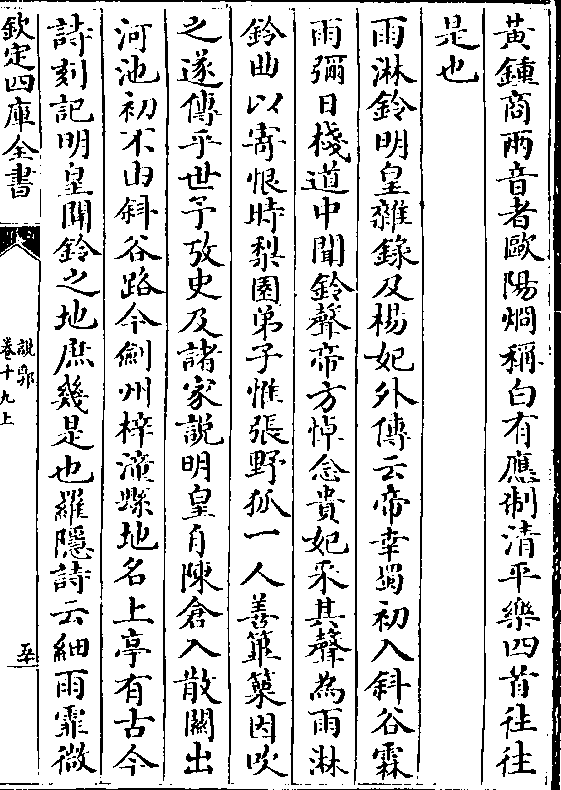 黃鍾商兩音者歐陽烱稱白有應制清平樂四首往往
是也
雨淋鈴明皇雜錄及楊妃外傳云帝幸蜀初入斜谷霖
雨彌日棧道中聞鈴聲帝方悼念貴妃采其聲為雨淋
鈴曲以寄恨時梨園弟子惟張野狐一人善篳篥因吹
之遂傳乎世予攷史及諸家說明皇自陳倉入散關出
河池初不由斜谷路今劒州梓潼縣地名上亭有古今
詩刻記明皇聞鈴之地庶幾是也羅隱詩云細雨霏微
欽定四庫全書
說郛
卷十九上